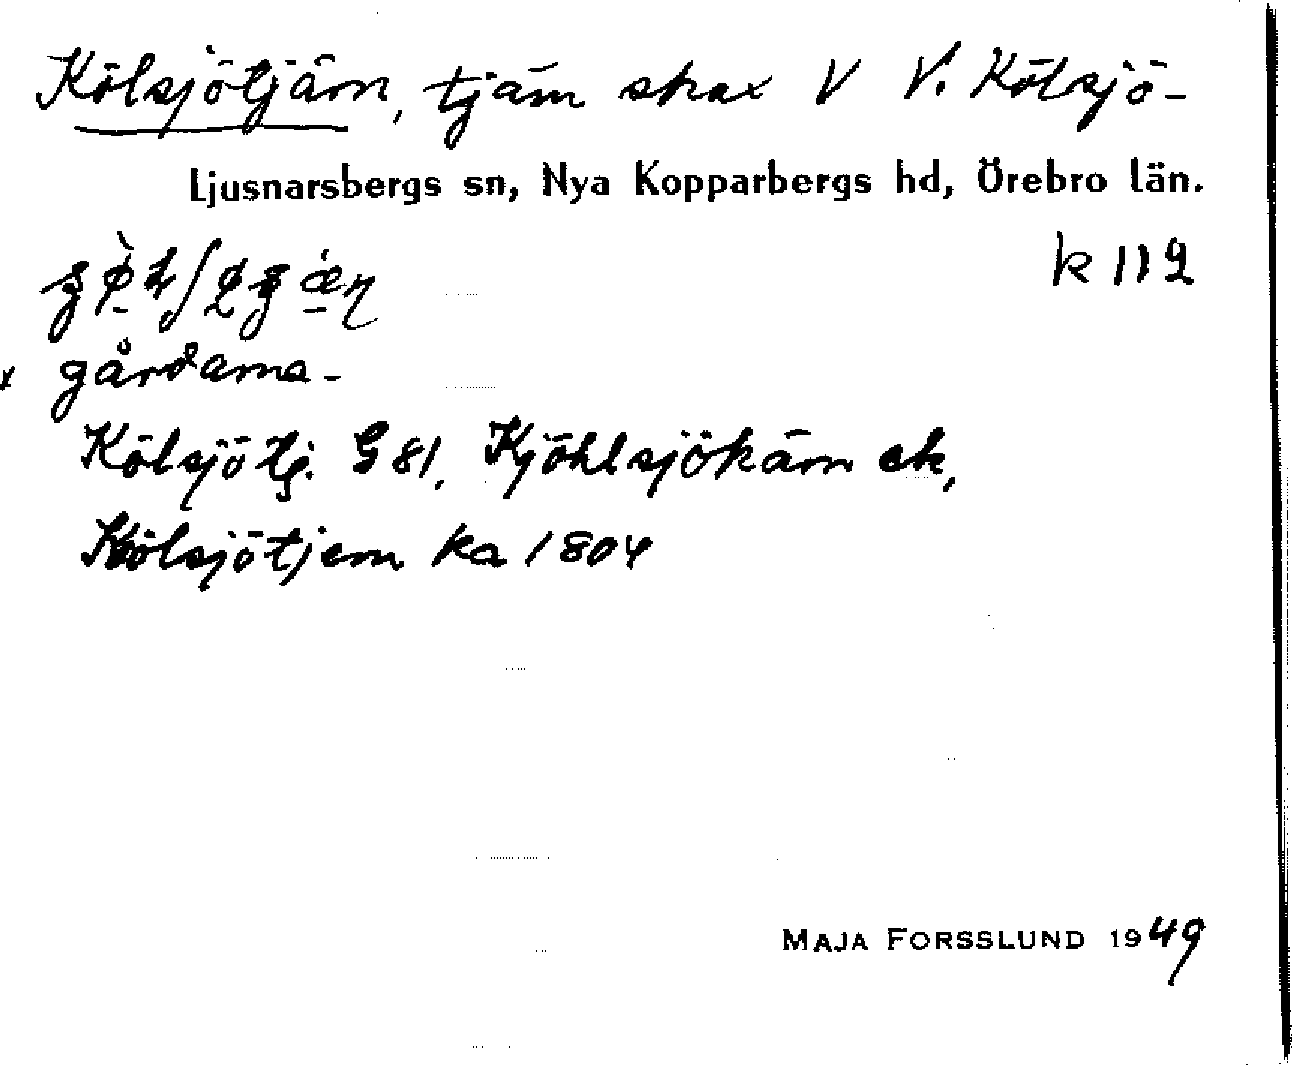 Kölsjötjärn, tjärn strax V V. Kölsjö-
Ljusnarsbergs sn, Nya Kopparbergs hd, Örebro län.
k 112
x gårdarna-
Kölsjötj. G 81, Kjöhlsjökärn ek,
Kölsjötjern ka 1804
MAJA FORSSLUND 1949